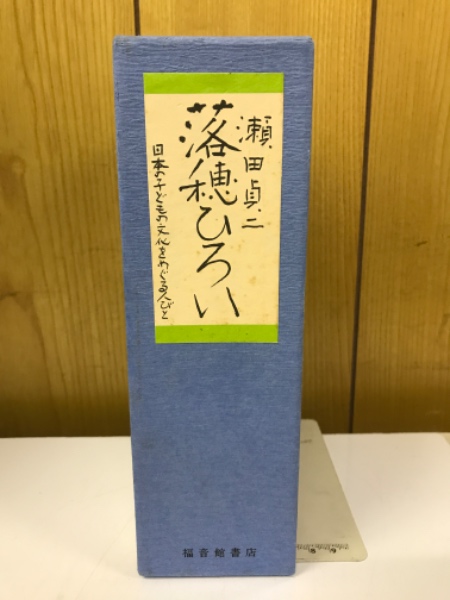 瀬田貞二
落穂ひろい
日本の子どもの文化をめぐる人びと
福音館書店